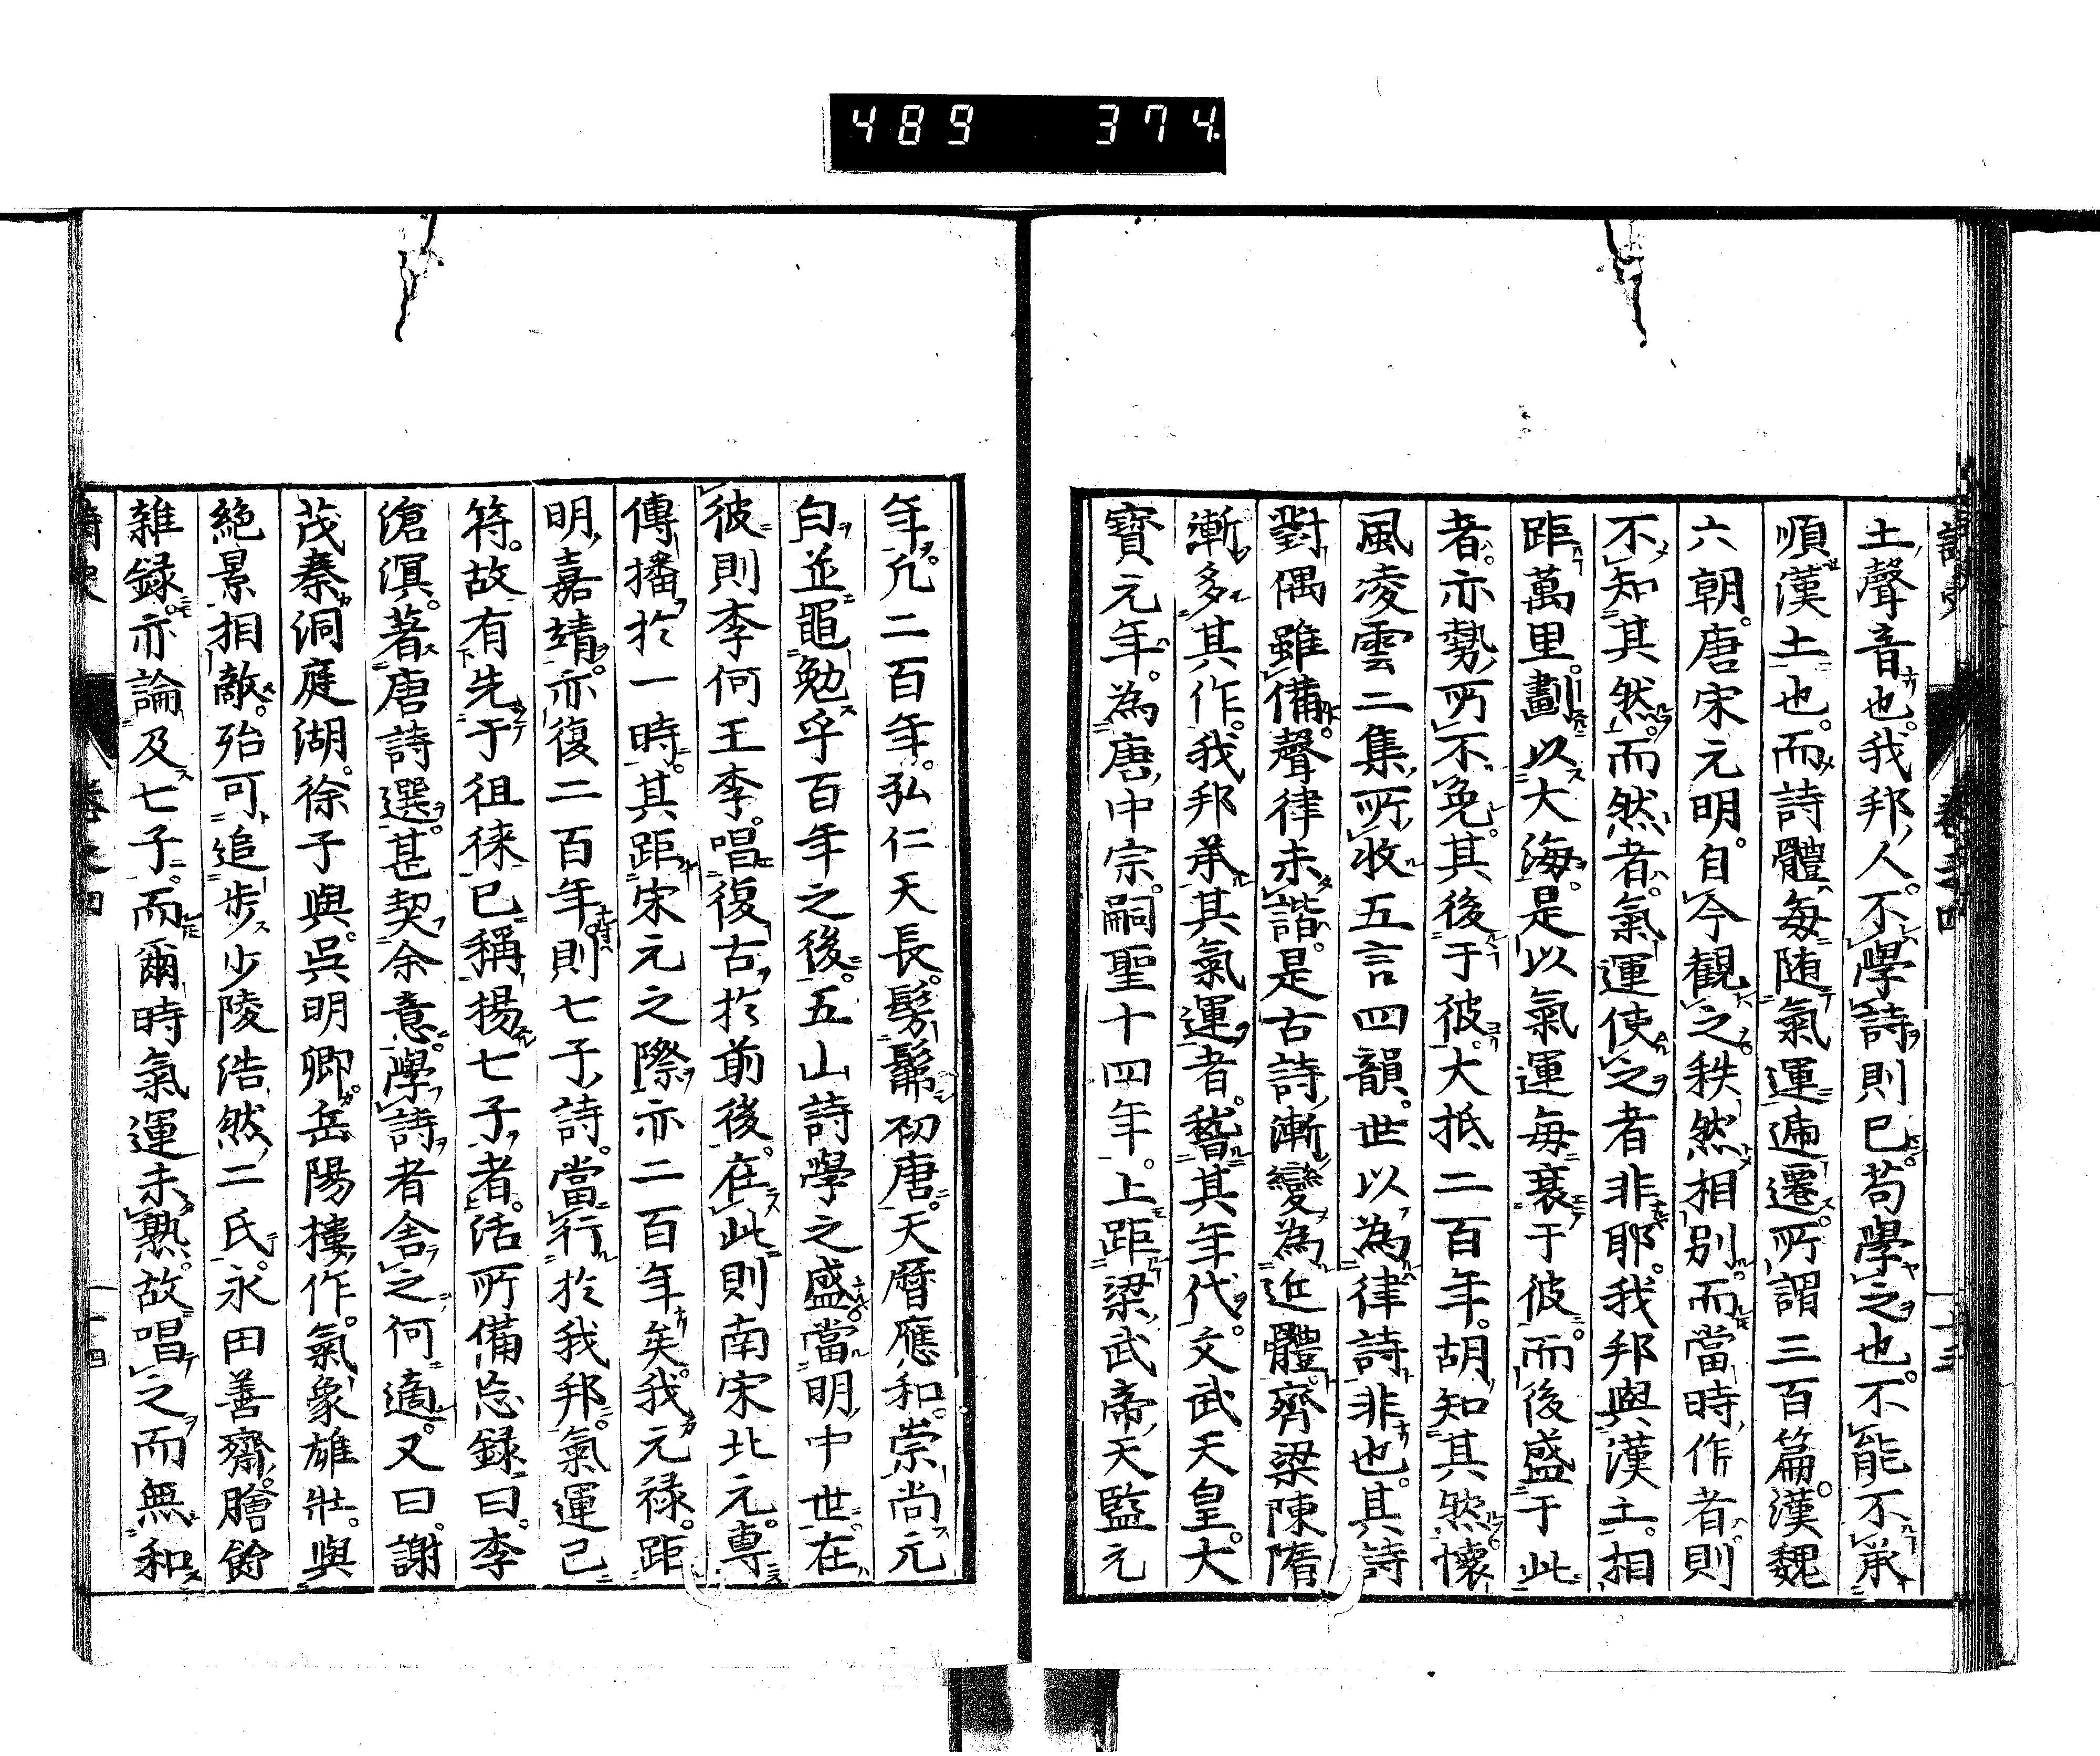 489 374.
土聲音也。我邦人。不學詩則已。苟學之也。不能不承
順漢土也。而詩體每隨氣運遞遷。所謂三百篇。漢魏
六朝。唐宋元明。自今觀之秩然相別。而當時作者。則
不知其然。而然者。氣運使之者非耶。我邦與漢土。相
距萬里。劃以大海。是以氣運每衰于彼。而後盛于此
者。亦勢所不免。其後于彼。大抵二百年。胡知其然。懷
風凌雲二集。所收五言四韻。世以為律詩。非也。其詩
對偶雖備。聲律未諧。是古詩漸變為近體。齊梁陳隋
漸多其作。我邦承其氣運者。稽其年代。文武天皇。大
寶元年。為唐中宗。嗣聖十四年。上距梁武帝天監元
年。凡二百年。弘仁天長。髣髴初唐。天曆應和。崇尚元
白。並黽勉乎百年之後。五山詩學之盛。當明中世。在
彼則李何王李。唱復古於前後。在此則南宋北元。專
傳播於一時。其距宋元之際。亦二百年矣。我元祿。距
明嘉靖。亦復二百年。則七子詩。當行於我邦。氣運已
符。故有先于徂徠已稱揚七子者。活所備忘錄曰。李
滄溟。著唐詩選。甚契余意。學詩者舍之何適。又曰。謝
茂秦洞庭湖。徐子與。吳明卿岳陽樓作。氣象雄壯。與
絕景相敵。殆可追步少陵浩然二氏。永田善齋。膾餘
雜錄。亦論及七子。而爾時氣運未熟。故唱之而無和